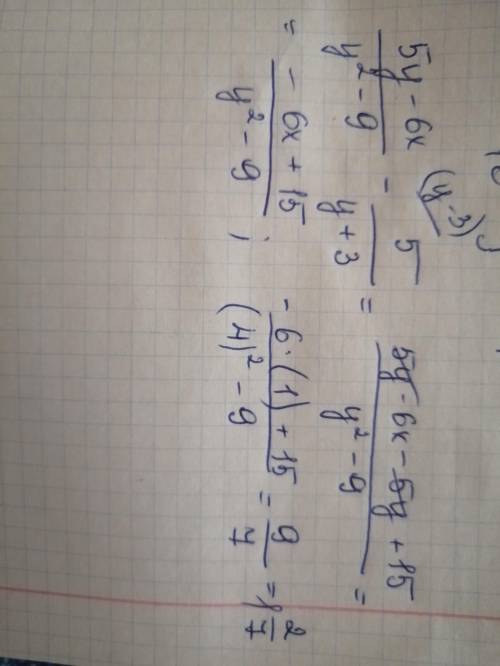 (y-3)
(5y - 6x)/(y² - 9) - 5/(y + 3) = (5y - 6x - 5y + 15)/(y² - 9) =
= (- 6x + 15)/(y² - 9) ; (- 6·(1) + 15)/((4)² - 9) = 9/7 = 1 2/7